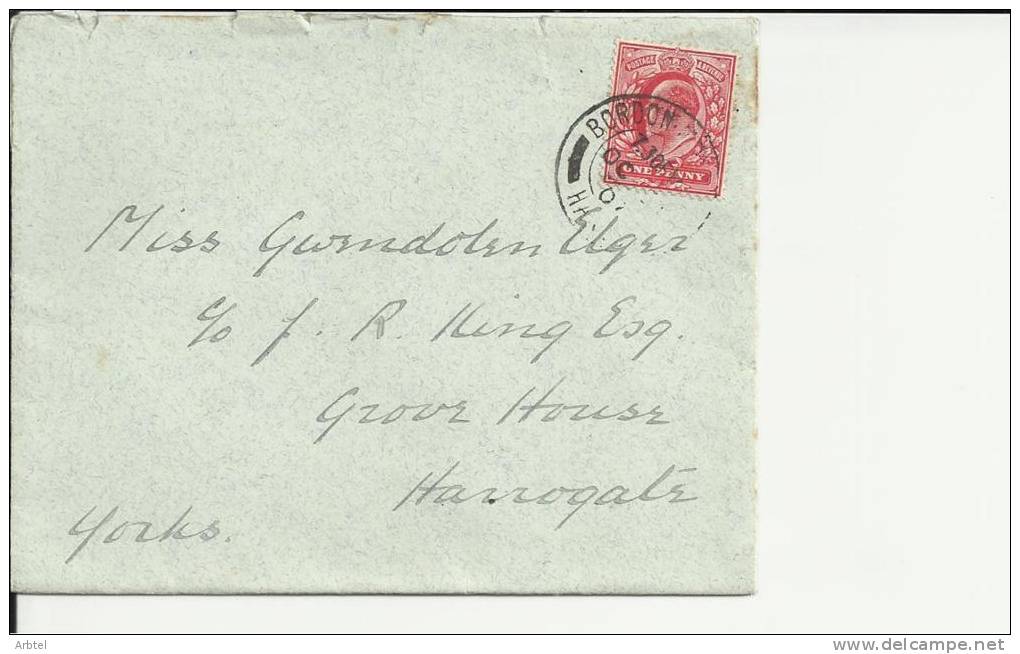 POSTAGE & REVENUE
BORDON
ONE PENNY
Miss Gwendolen Elger
c/o J. R. King Esq.
Grove House
Harrogate
Yorks.
Arbtel
www.delcampe.net